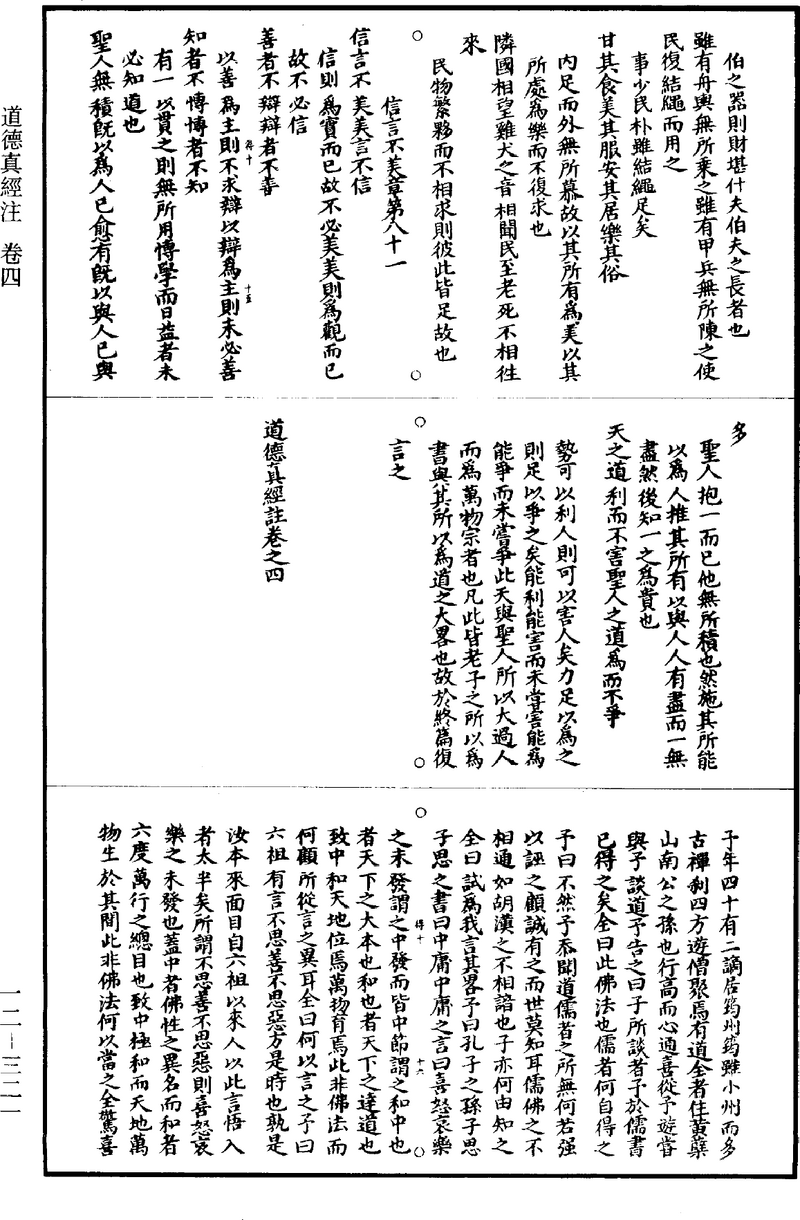 道德真經注　卷四
一二—三二一
伯之器則財堪什夫伯夫之長者也
雖有舟輿無所乘之雖有甲兵無所陳之使
民復結繩而用之
事少民朴雖結繩足矣
甘其食美其服安其居樂其俗
內足而外無所慕故以其所有爲美以其
所處為樂而不復求也
隣國相望雞犬之音相聞民至老死不相往
來
民物繁夥而不相求則彼此皆足故也
信言不美章第八十一
信言不美美言不信
信則爲實而已故不必美美則爲觀而已
故不必信
善者不辯辯者不善
以善爲主則不求辯以辯爲主則未必善
得十
十五
知者不博博者不知
有一以貫之則無所用博學而日益者未
必知道也
聖人無積旣以爲人已愈有旣以與人已與
多
聖人抱一而已他無所積也然施其所能
以爲人推其所有以與人人有盡而一無
盡然後知一之爲貴也
天之道利而不害聖人之道爲而不爭
勢可以利人則可以害人矣力足以爲之
則足以爭之矣能利能害而未嘗害能爲
能爭而未嘗爭此天與聖人所以大過人
而爲萬物宗者也凡此皆老子之所以爲
書與其所以爲道之大畧也故於終篇復
言之
道德真經註卷之四
予年四十有二謫居筠州筠雖小州而多
古禪刹四方遊僧聚焉有道全者住黃蘗
山南公之孫也行高而心通喜從予遊嘗
與予談道予告之曰子所談者予於儒書
已得之矣全曰此佛法也儒者何自得之
予曰不然予忝聞道儒者之所無何若强
以誣之顧誠有之而世莫知耳儒佛之不
相通如胡漢之不相諳也子亦何由知之
全曰試爲我言其畧予曰孔子之孫子思
子思之書曰中庸中庸之言曰喜怒哀樂
之未發謂之中發而皆中節謂之和中也
得十
十六
者天下之大本也和也者天下之達道也
致中和天地位焉萬物育焉此非佛法而
何顧所從言之異耳全曰何以言之予曰
六祖有言不思善不思惡方是時也孰是
汝本來面目自六祖以來人以此言悟入
者太半矣所謂不思善不思惡則喜怒哀
樂之未發也蓋中者佛性之異名而和者
六度萬行之總目也致中極和而天地萬
物生於其間此非佛法何以當之全驚喜